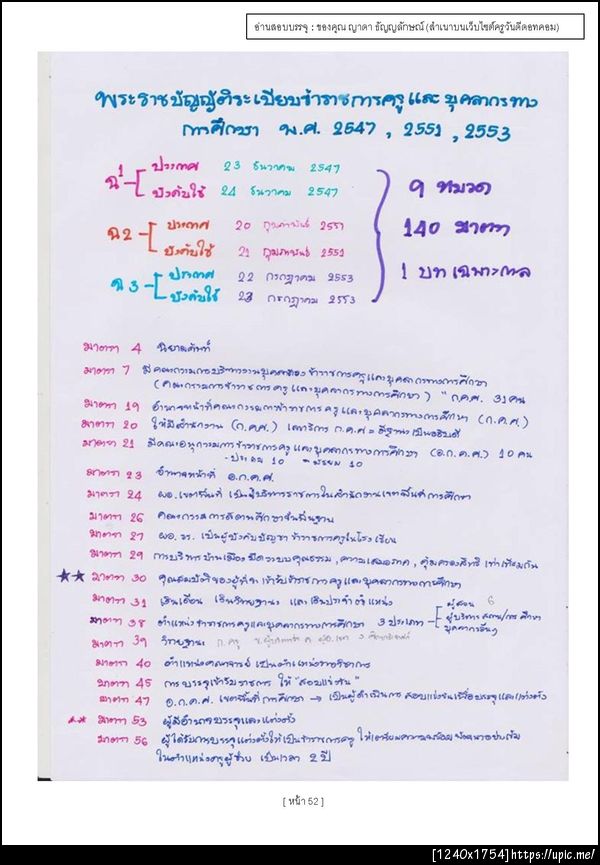 อ่านสอบบรรจุ : ของคุณ ญาดา ธัญญลักษณ์ (สำเนาบนเว็บไซต์ครูวันดีดอทคอม)
พระราชบัญญัติระเบียบข้าราชการครูและบุคลากรทาง
การศึกษา พ.ศ. 2547 , 2551 , 2553
ฉ1 ประกาศ 23 ธันวาคม 2547
บังคับใช้ 24 ธันวาคม 2547
ฉ2 ประกาศ 20 กุมภาพันธ์ 2551
บังคับใช้ 21 กุมภาพันธ์ 2551
ฉ3 ประกาศ 22 กรกฎาคม 2553
บังคับใช้ 23 กรกฎาคม 2553
9 หมวด
140 มาตรา
1 บทเฉพาะกาล
มาตรา 4 นิยามศัพท์
มาตรา 7 มีคณะกรรมการบริหารงานบุคคลของข้าราชการครูและบุคลากรทางการศึกษา
(คณะกรรมการข้าราชการครูและบุคลากรทางการศึกษา) " ก.ค.ศ. 31 คน
มาตรา 19 อำนาจหน้าที่คณะกรรมการข้าราชการครูและบุคลากรทางการศึกษา (ก.ค.ศ.)
มาตรา 20 ให้มีสำนักงาน (ก.ค.ศ.) เลขาธิการ ก.ค.ศ = มีฐานะเป็นอธิบดี
มาตรา 21 มีคณะอนุกรรมการข้าราชการครูและบุคลากรทางการศึกษา (อ.ก.ค.ศ.) 10 คน
- ประถม 10 - มัธยม 10
มาตรา 23 อำนาจหน้าที่ อ.ก.ค.ศ.
มาตรา 24 ผอ.เขตพื้นที่ เป็นผู้บริหารราชการในสำนักงานเขตพื้นที่การศึกษา
มาตรา 26 คณะกรรมการสถานศึกษาขั้นพื้นฐาน
มาตรา 27 ผอ. รร. เป็นผู้บังคับบัญชา ข้าราชการครูในโรงเรียน
มาตรา 29 การบริหารบ้านเมือง ยึดระบบคุณธรรม , ความเสมอภาค , คุ้มครองสิทธิ เท่าเทียมกัน
★★ มาตรา 30 คุณสมบัติของผู้ที่จะเข้ารับราชการครูและบุคลากรทางการศึกษา
มาตรา 31 เงินเดือน เงินวิทยฐานะ และเงินประจำตำแหน่ง
มาตรา 38 ตำแหน่งข้าราชการครูและบุคลากรทางการศึกษา 3 ประเภท
ผู้สอน 6
ผู้บริหารสถาน/การศึกษา
บุคลากรอื่นๆ
มาตรา 39 วิทยฐานะ
มาตรา 40 ตำแหน่งคณาจารย์ เป็นตำแหน่งทางวิชาการ
มาตรา 45 การบรรจุเข้ารับราชการ ให้ "สอบแข่งขัน"
มาตรา 47 อ.ก.ค.ศ. เขตพื้นที่การศึกษา → เป็นผู้ดำเนินการ สอบแข่งขันเพื่อบรรจุและแต่งตั้ง
** มาตรา 53 ผู้มีอำนาจบรรจุและแต่งตั้ง
มาตรา 56 ผู้ได้รับการบรรจุแต่งตั้งให้เป็นข้าราชการครู ให้เตรียมความพร้อม พัฒนาอย่างเข้ม
ในตำแหน่งครูผู้ช่วย เป็นเวลา 2 ปี
[ หน้า 52 ]
[1240x1754]https://upic.me/